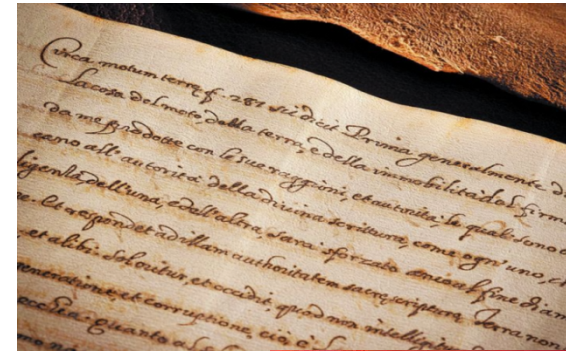 Circa motum terrę f. 287 sic dicit. Prima generalmente
la cosa del moto della terra, e della immobilità del firm
da me prodotte con le sue raggioni, et autorità; le quali sono c
cano all' autorità della divina scrittura, come ogn'uno, c
ligenza dell'una, e dell'altra, sarà sforzato anco al fine di am
e. Et respondet ad illam authoritatem sacrę scripturę. Terra
et alibi: Sol oritur, et occidit, quod
generatione, et corruttione, cio è
quanto